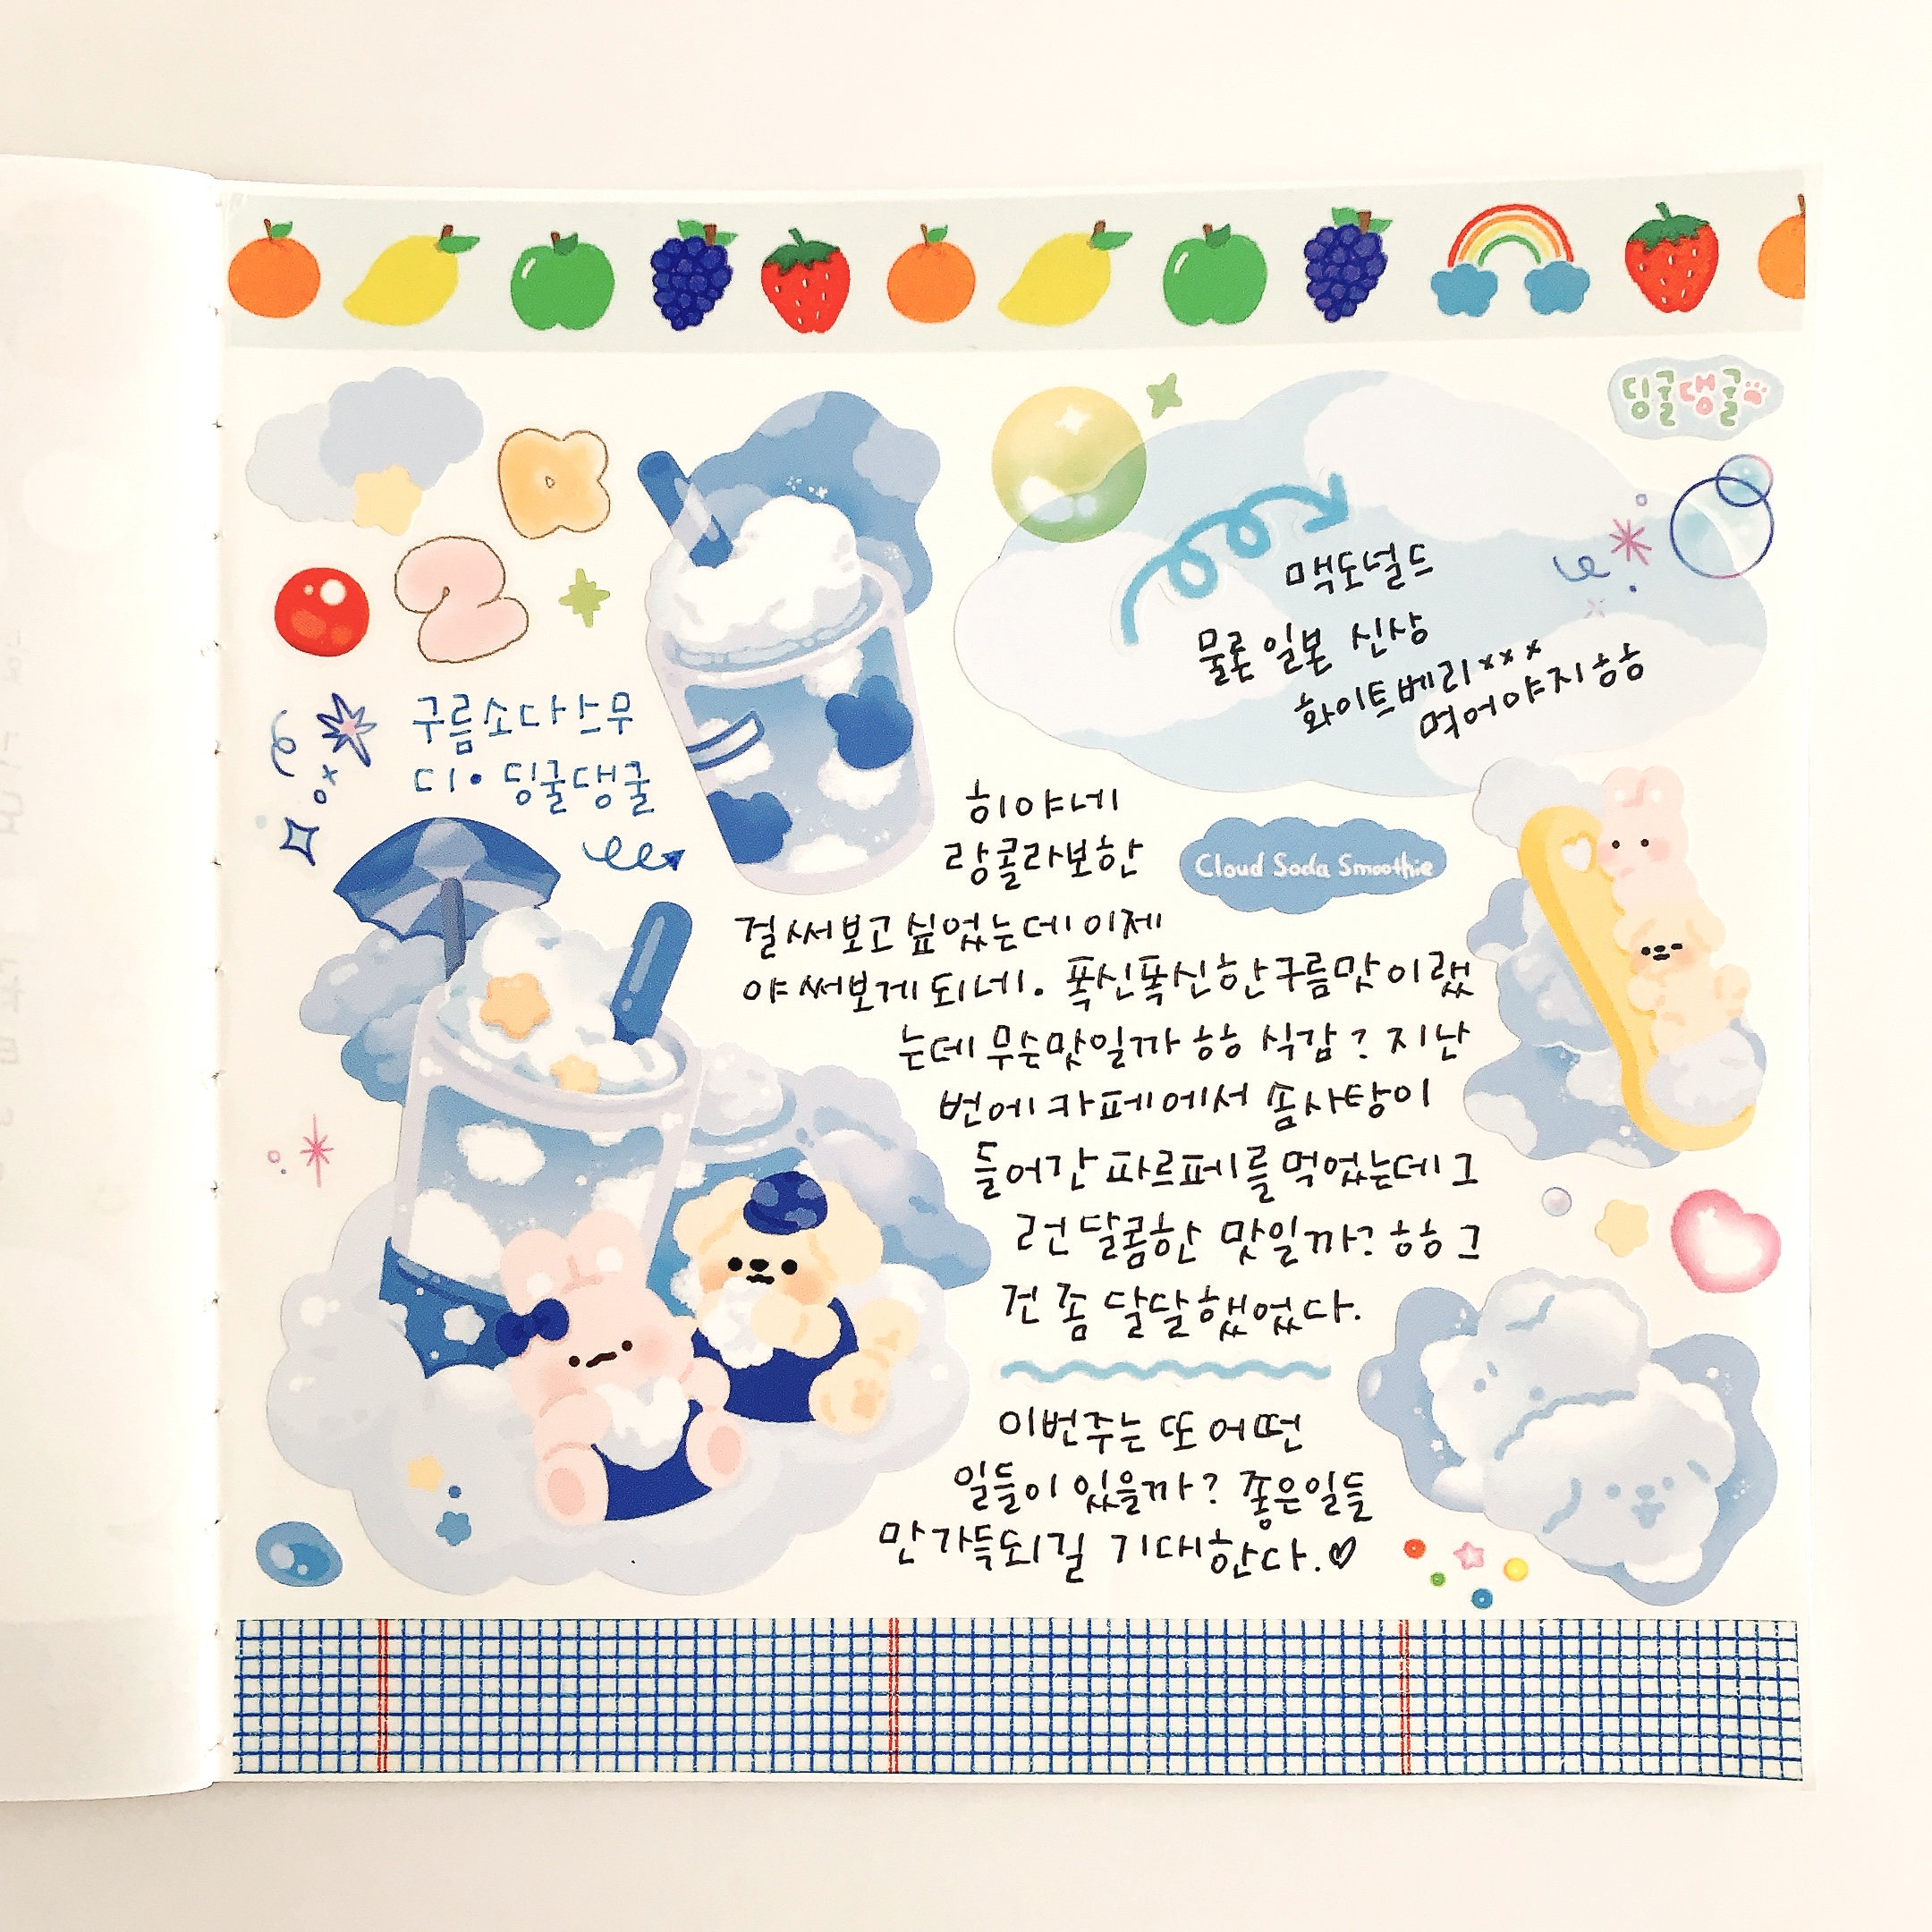 딩굴댕굴
2
맥도널드
물론 일본 신상
화이트베리×××
먹어야지ㅎㅎ
구름소다스무
디• 딩굴댕굴
히야네
랑콜라보한
Cloud Soda Smoothie
걸써보고싶었는데이제
야써보게되네. 폭신폭신한구름맛이랬
는데 무슨맛일까ㅎㅎ 식감? 지난
번에카페에서 솜사탕이
들어간 파르페를먹었는데그
런달콤한 맛일까?ㅎㅎ그
건 좀 달달했었다.
이번주는 또 어떤
일들이 있을까? 좋은일들
만 가득되길 기대한다.♡